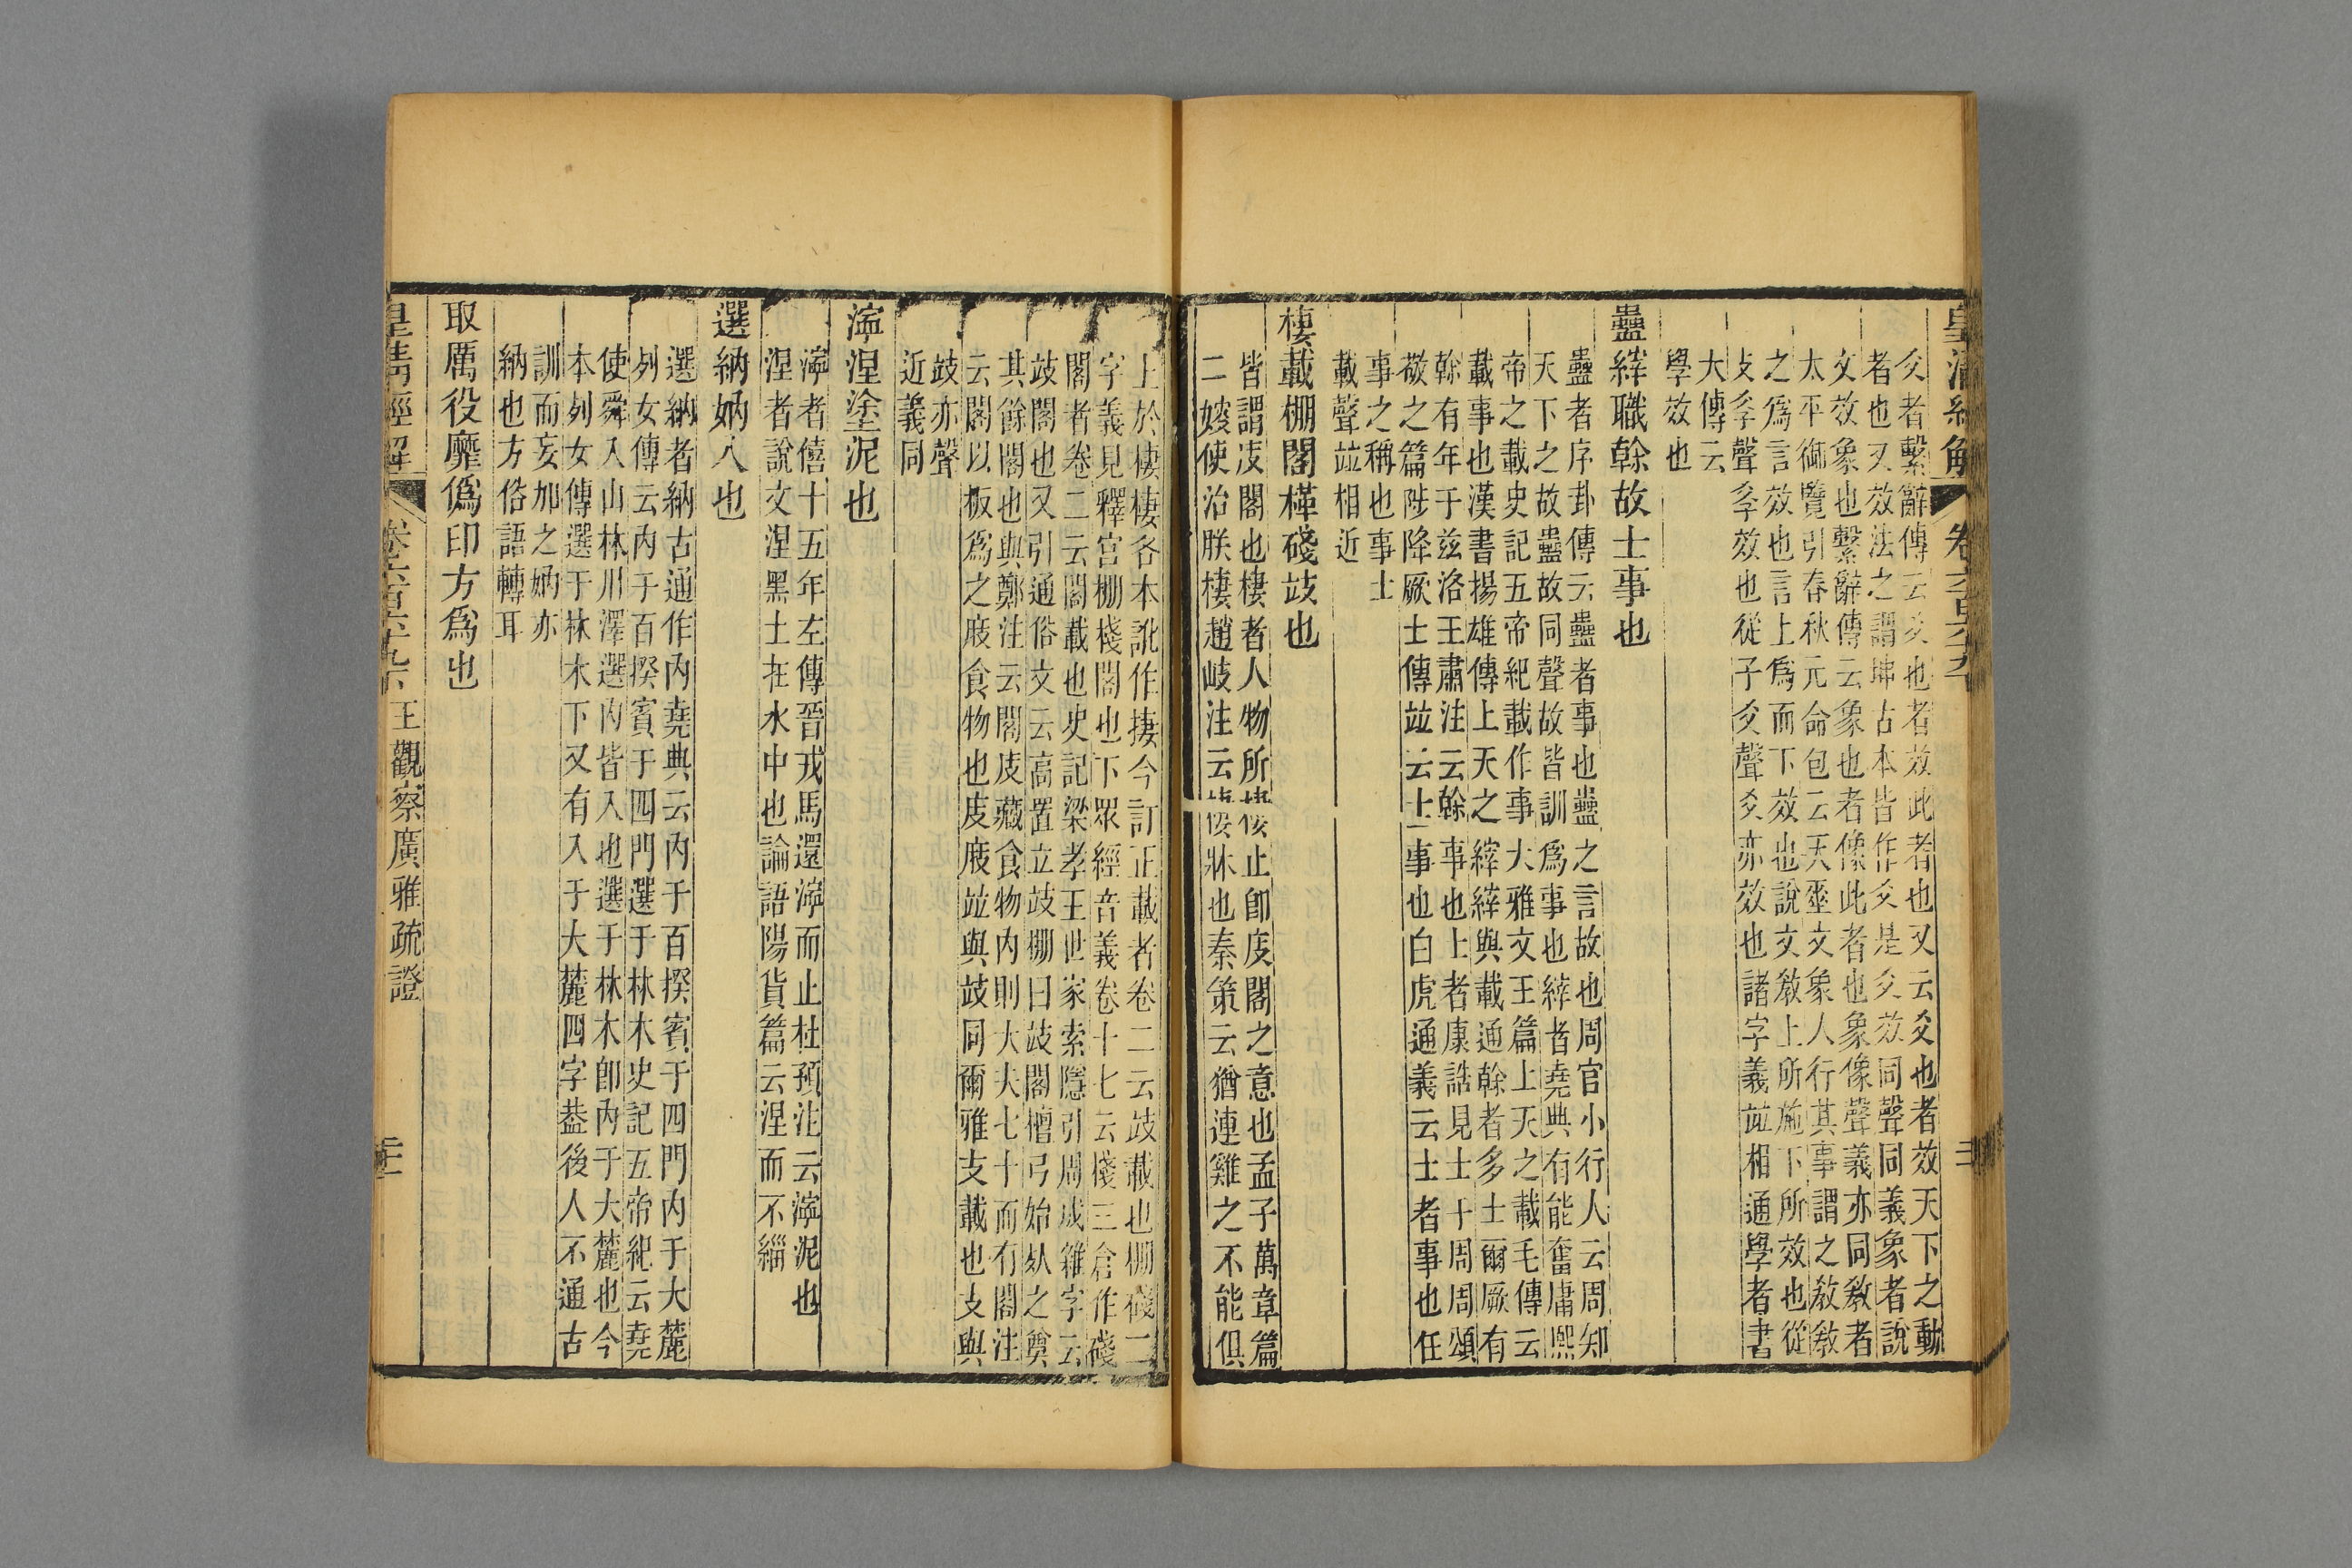 皇清經解
卷六百六十九下
爻者繫辭傳云爻也者效此者也又云爻也者效天下之動
者也又效法之謂坤古本皆作爻是爻效同聲同義象者說
文效象也繫辭傳云象也者像此者也象像聲義亦同敎者
太平御覽引春秋元命包云天垩文象人行其事謂之敎敎
之爲言效也言上爲而下效也說文敎上所施下所效也從
攴孝聲孝效也從子爻聲爻亦效也諸字義竝相通學者書
大傳云
學效也
蠱縡職榦故士事也
蠱者序卦傳云蠱者事也蠱之言故也周官小行人云周知
天下之故蠱故同聲故皆訓爲事也縡者堯典有能奮庸熙
帝之載史記五帝紀載作事大雅文王篇上天之載毛傳云
載事也漢書揚雄傳上天之縡縡與載通榦者多士爾厥有
榦有年于兹洛王肅注云榦事也上者康誥見士于周周頌
敬之篇陟降厥士傳竝云士事也白虎通義云士者事也任
事之稱也事士
載聲竝相近
棲載棚閣槿碊攱也
皆謂庋閣也棲者人物所棲止卽庋閣之意也孟子萬章篇
二嫂使治朕棲趙岐注云牀也秦策云猶連雞之不能俱
上於棲棲各本訛作捿今訂正載者卷二云攱載也棚碊二
字義見釋宮棚棧閣也下眾經音義卷十七云棧三倉作碊
閣者卷二云閣載也史記梁孝王世家索隱引周成雜字云
攱閣也又引通俗文云高置立攱棚曰攱閣檀弓始死之奠
其餘閣也與鄭注云閣庋藏食物內則大夫七十而有閣注
云閣以板爲之庪食物也庋庪竝與攱同爾雅支載也支與
攱亦聲
近義同
濘涅塗泥也
濘者僖十五年左傳晉戎馬還濘而止杜預注云濘泥也
涅者說文涅黑土在水中也論語陽貨篇云涅而不緇
選納妠入也
選納者納古通作內堯典云內于百揆賓于四門內于大麓
列女傳云內于百揆賓于四門選于林木史記五帝紀云堯
使舜入山林川澤選內皆入也選于林木卽內于大麓也今
本列女傳選于林木下又有入于大麓四字葢後人不通古
訓而妄加之妠亦
納也方俗語轉耳
取厲役靡僞印方爲也
皇清經解
卷六百六十九下 王觀察廣雅疏證